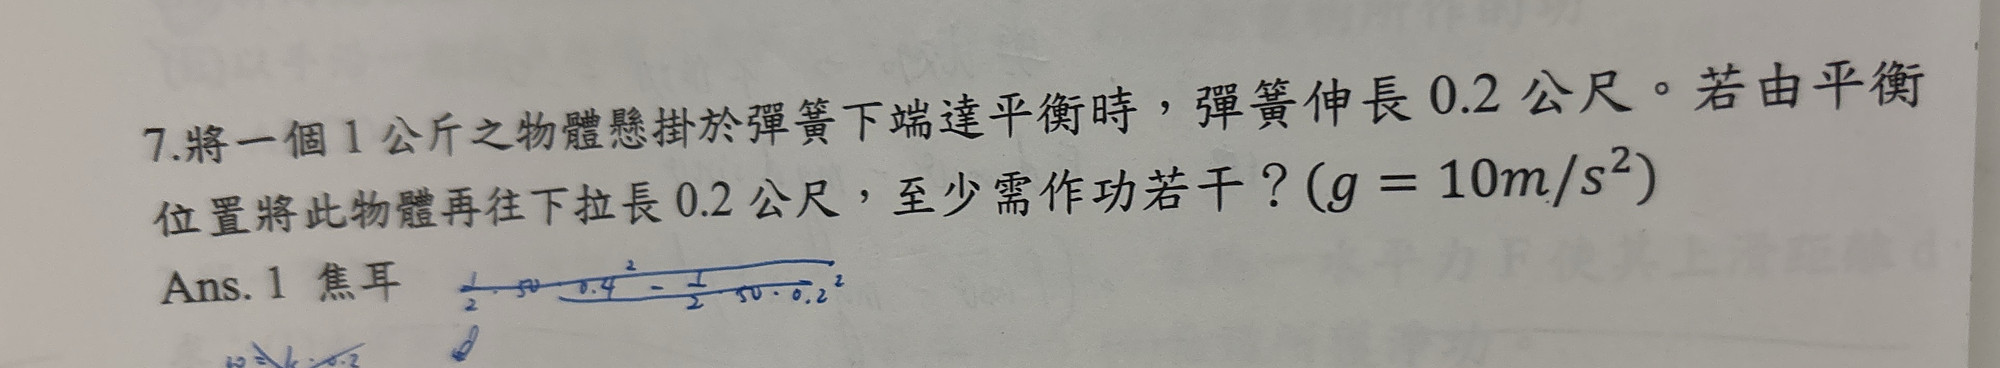 7.將一個 1 公斤之物體懸掛於彈簧下端達平衡時，彈簧伸長 0.2 公尺。若由平衡
位置將此物體再往下拉長 0.2 公尺，至少需作功若干？(g = 10m/s²)
Ans. 1 焦耳 1/2 · 50 0.4² - 1/2 50 · 0.2²